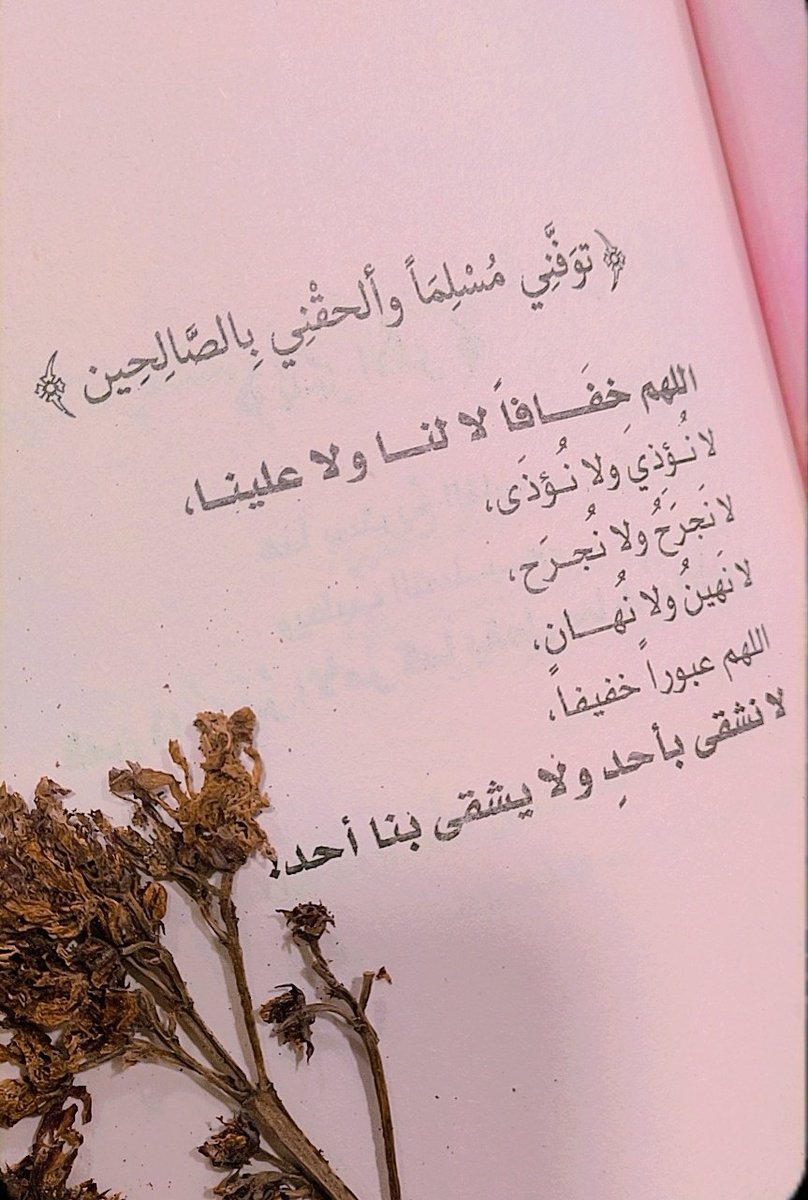 ﴿تَوَفَّنِي مُسْلِمَاً وألحقْنِي بِالصَّالِحِين﴾
اللهم خِفَـــافاً لا لنـــا ولا علينـــا،
لا نُـؤذي ولا نُـؤذَى،
لا نَجرَحُ ولا نُجـرَح،
لا نَهينُ ولا نُهـــانِ،
اللهم عبوراً خفيفاً،
لا نشقى بأحدٍ ولا يشقى بنا أحد.